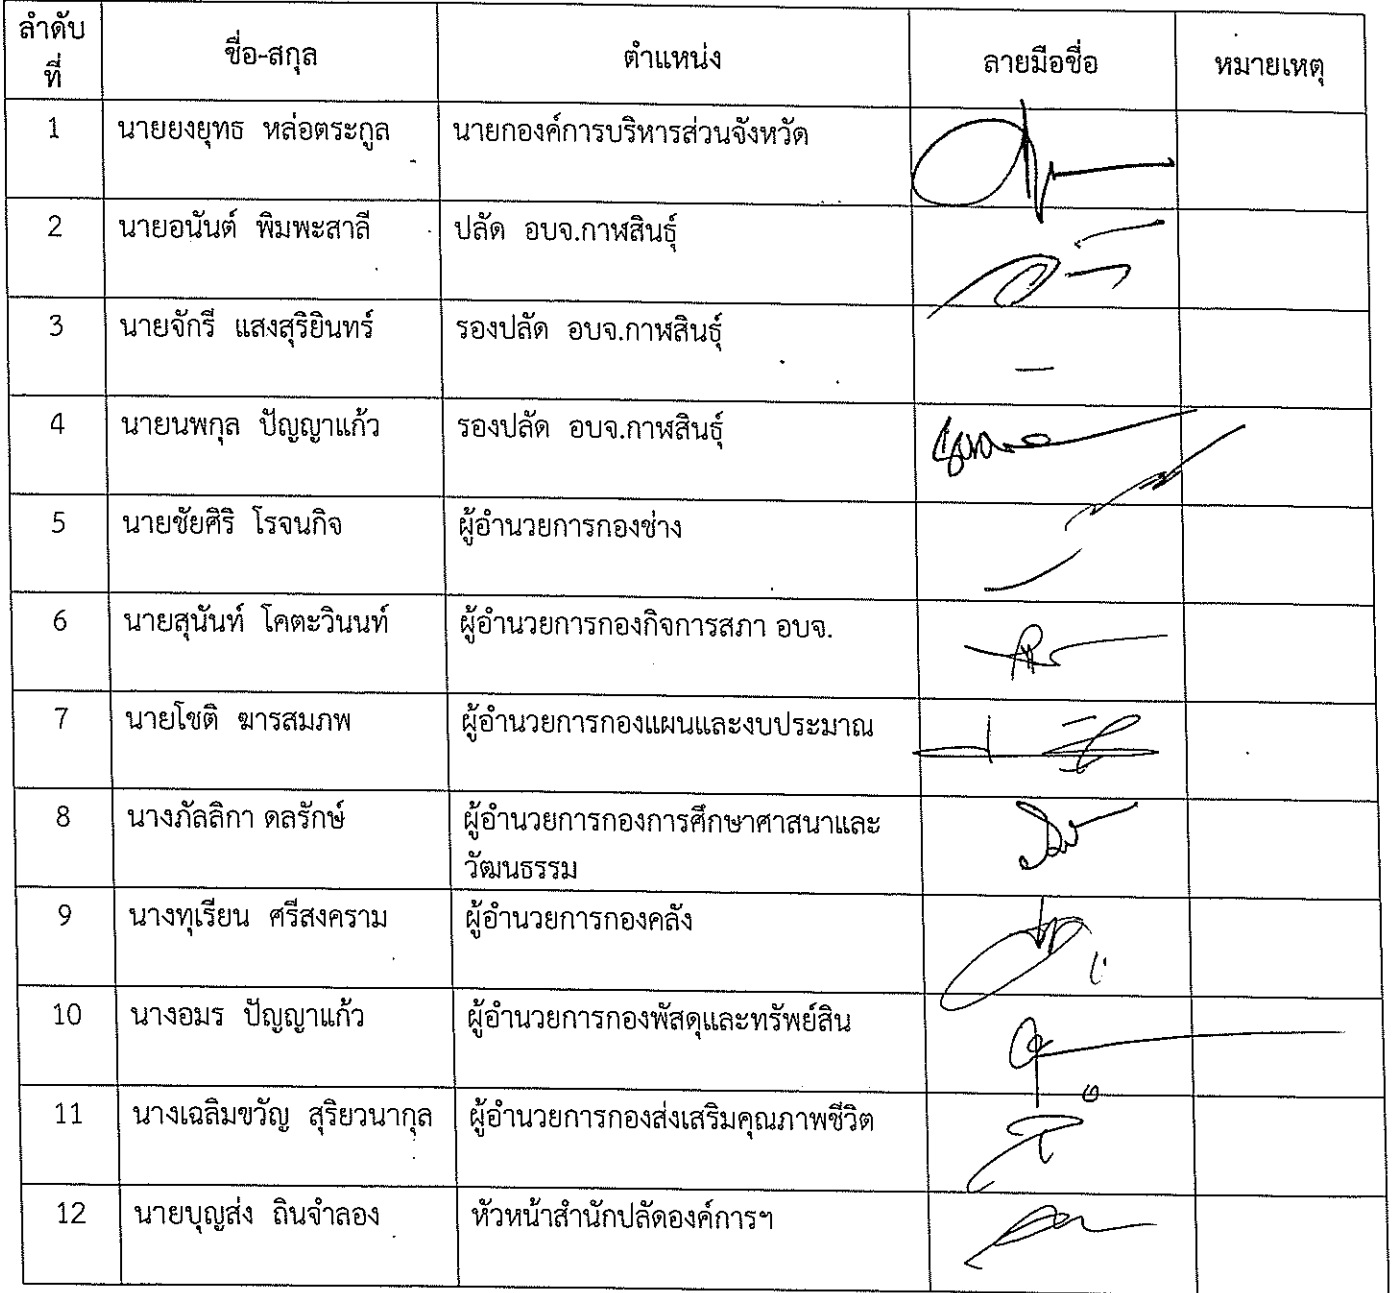 ลำดับ
ที่
ชื่อ-สกุล
ตำแหน่ง
ลายมือชื่อ
หมายเหตุ
1 นายยงยุทธ หล่อตระกูล นายกองค์การบริหารส่วนจังหวัด
2 นายอนันต์ พิมพะสาลี ปลัด อบจ.กาฬสินธุ์
3 นายจักรี แสงสุริยินทร์ รองปลัด อบจ.กาฬสินธุ์ –
4 นายนพกุล ปัญญาแก้ว รองปลัด อบจ.กาฬสินธุ์
5 นายชัยศิริ โรจนกิจ ผู้อำนวยการกองช่าง
6 นายสุนันท์ โคตะวินนท์ ผู้อำนวยการกองกิจการสภา อบจ.
7 นายโชติ ฆารสมภพ ผู้อำนวยการกองแผนและงบประมาณ
8 นางภัลลิกา ดลรักษ์ ผู้อำนวยการกองการศึกษาศาสนาและ
วัฒนธรรม
9 นางทุเรียน ศรีสงคราม ผู้อำนวยการกองคลัง
10 นางอมร ปัญญาแก้ว ผู้อำนวยการกองพัสดุและทรัพย์สิน
11 นางเฉลิมขวัญ สุริยวนากุล ผู้อำนวยการกองส่งเสริมคุณภาพชีวิต
12 นายบุญส่ง ถินจำลอง หัวหน้าสำนักปลัดองค์การฯ